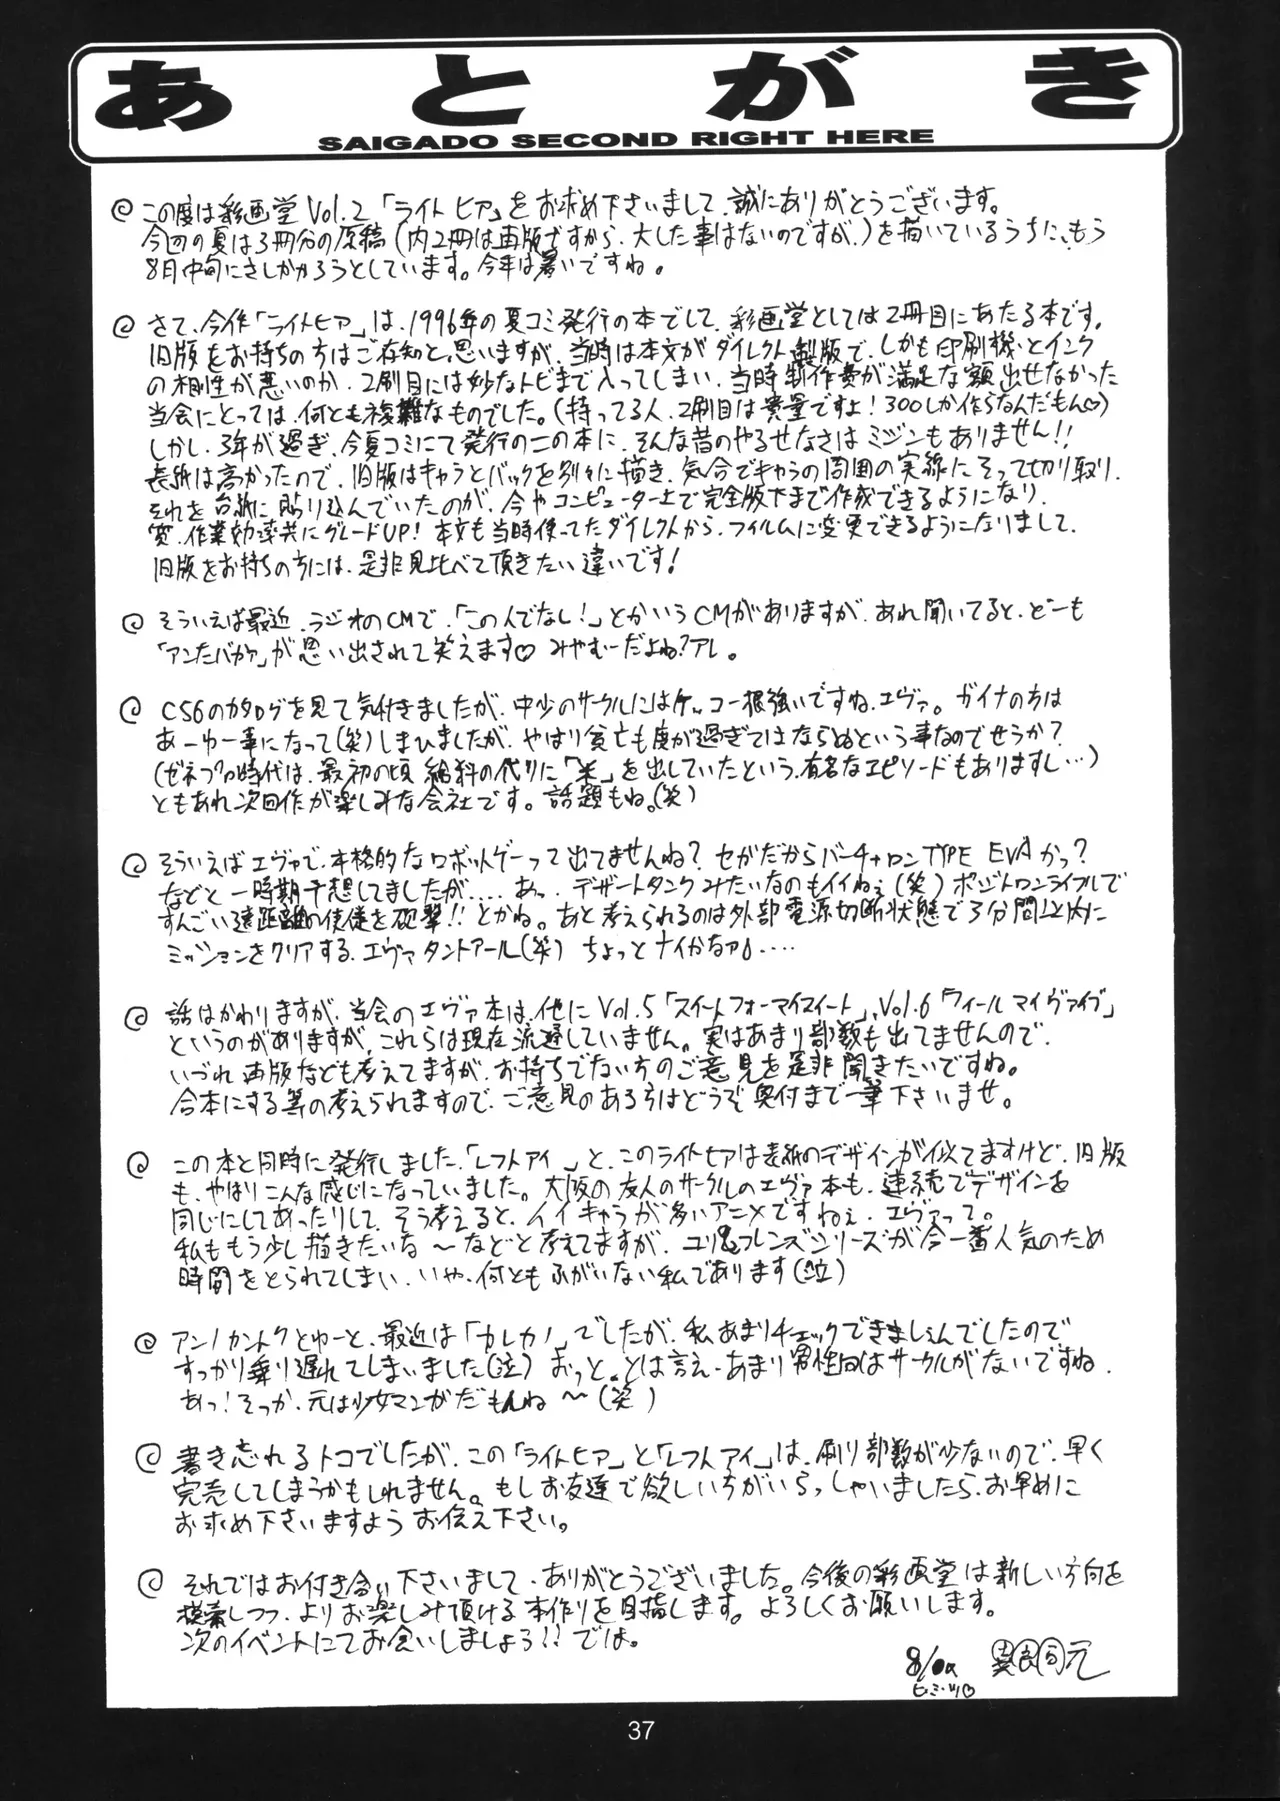 あとがき
SAIGADO SECOND RIGHT HERE
この度は彩画堂Vol.2「ライトヒア」をお求め下さいまして、誠にありがとうございます。
今回の夏は3冊分の原稿(内2冊は再版ですから、大した事はないのですが、)を描いているうちに、もう
8月中旬にさしかかろうとしています。今年は暑いですね。
さて、今作「ライトヒア」は、1996年の夏コミ発行の本でして、彩画堂としては2冊目にあたる本です。
旧版をお持ちの方はご存知と思いますが、当時は本文がダイレクト製版で、しかも印刷機とインク
の相性が悪いのか、2刷目には妙なトビまで入ってしまい、当時制作費が満足な額出せなかった
当会にとっては、何とも複雑なものでした。(持ってる人、2刷目は貴重ですよ!300しか作らなんだもん♡)
しかし、3年が過ぎ、今夏コミにて発行のこの本に、そんな昔のやるせなさはミジンもありません!!
表紙は高かったので、旧版はキャラとバックを別々に描き、気合でキャラの周囲の実線にそって切り取り、
それを台紙に貼り込んでいたのが、今やコンピューター上で完全版下まで作成できるようになり、
質、作業効率共にグレードUP!本文も当時使ってたダイレクトから、フィルムに変更できるようになりまして、
旧版をお持ちの方には、是非見比べて頂きたい違いです!
そういえば最近、ラジオのCMで、「この人でなし!」とかいうCMがありますが、あれ聞いてると、どーも
「アンたバカァ」が思い出されて笑えます♡ みやむーだよね?アレ。
C56のカタログを見て気付きましたが、中少のサークルにはケッコー根強いですね、エヴァ。ガイナの方は
あーゆー事になって(笑)しまひましたが、やはり貧乏も度が過ぎてはならぬという事なのでせうか?
(ゼネプロ時代は、最初の頃給料の代りに「米」を出していたという、有名なエピソードもありますし…)
ともあれ次回作が楽しみな会社です。話題もね。(笑)
そういえばエヴァで、本格的なロボットゲーって出てませんね?セガだからバーチャロンTYPE EVAかっ?
などと一時期予想してましたが....あっ、デザートタンクみたいなのもイイねぇ(笑)ポジトロンライフルで
すんごい遠距離の使徒を砲撃!!とかね。あと考えられるのは外部電源切断状態で3分間以内に
ミッションをクリアする、エヴァタントアール(笑) ちょっとナイかなァ。....
話はかわりますが、当会のエヴァ本は、他にVol.5「スイートフォーマイスイート」、Vol.6「フィールマイヴァイブ」
というのがありますが、これらは現在流通していません。実はあまり部数も出てませんので、
いづれ再版なども考えてますが、お持ちでない方のご意見を是非聞きたいですね。
合本にする等の考えられますので、ご意見のある方はどうぞ奥付まで一筆下さいませ。
この本と同時に発行しました、「レフトアイ」と、このライトヒアは表紙のデザインが似てますけど、旧版
も、やはりこんな感じになっていました。大阪の友人のサークルのエヴァ本も、連続でデザインを
同じにしてあったりして、そう考えると、イイキャラが多いアニメですねぇ、エヴァって。
私ももう少し描きたいな～などと考えてますが、ユリ&フレンズシリーズが今一番人気のため
時間をとられてしまい、いや、何ともふがいない私であります(泣)
アンノカントクとゆーと、最近は「カレカノ」でしたが、私あまりチェックできませんでしたので
すっかり乗り遅れてしまいました(泣)おっと、とは言え、あまり男性向はサークルがないですね、
あっ!そっか、元は少女マンガだもんね～(笑)
書き忘れるトコでしたが、この「ライトヒア」と「レフトアイ」は、刷り部数が少ないので、早く
完売してしまうかもしれません。もしお友達で欲しい方がいらっしゃいましたら、お早めに
お求め下さいますようお伝え下さい。
それではお付き合い下さいまして、ありがとうございました。今後の彩画堂は新しい方向を
模索しつつ、よりお楽しみ頂ける本作りを目指します。よろしくお願いします。
次のイベントにてお会いしましょう!!では。
37